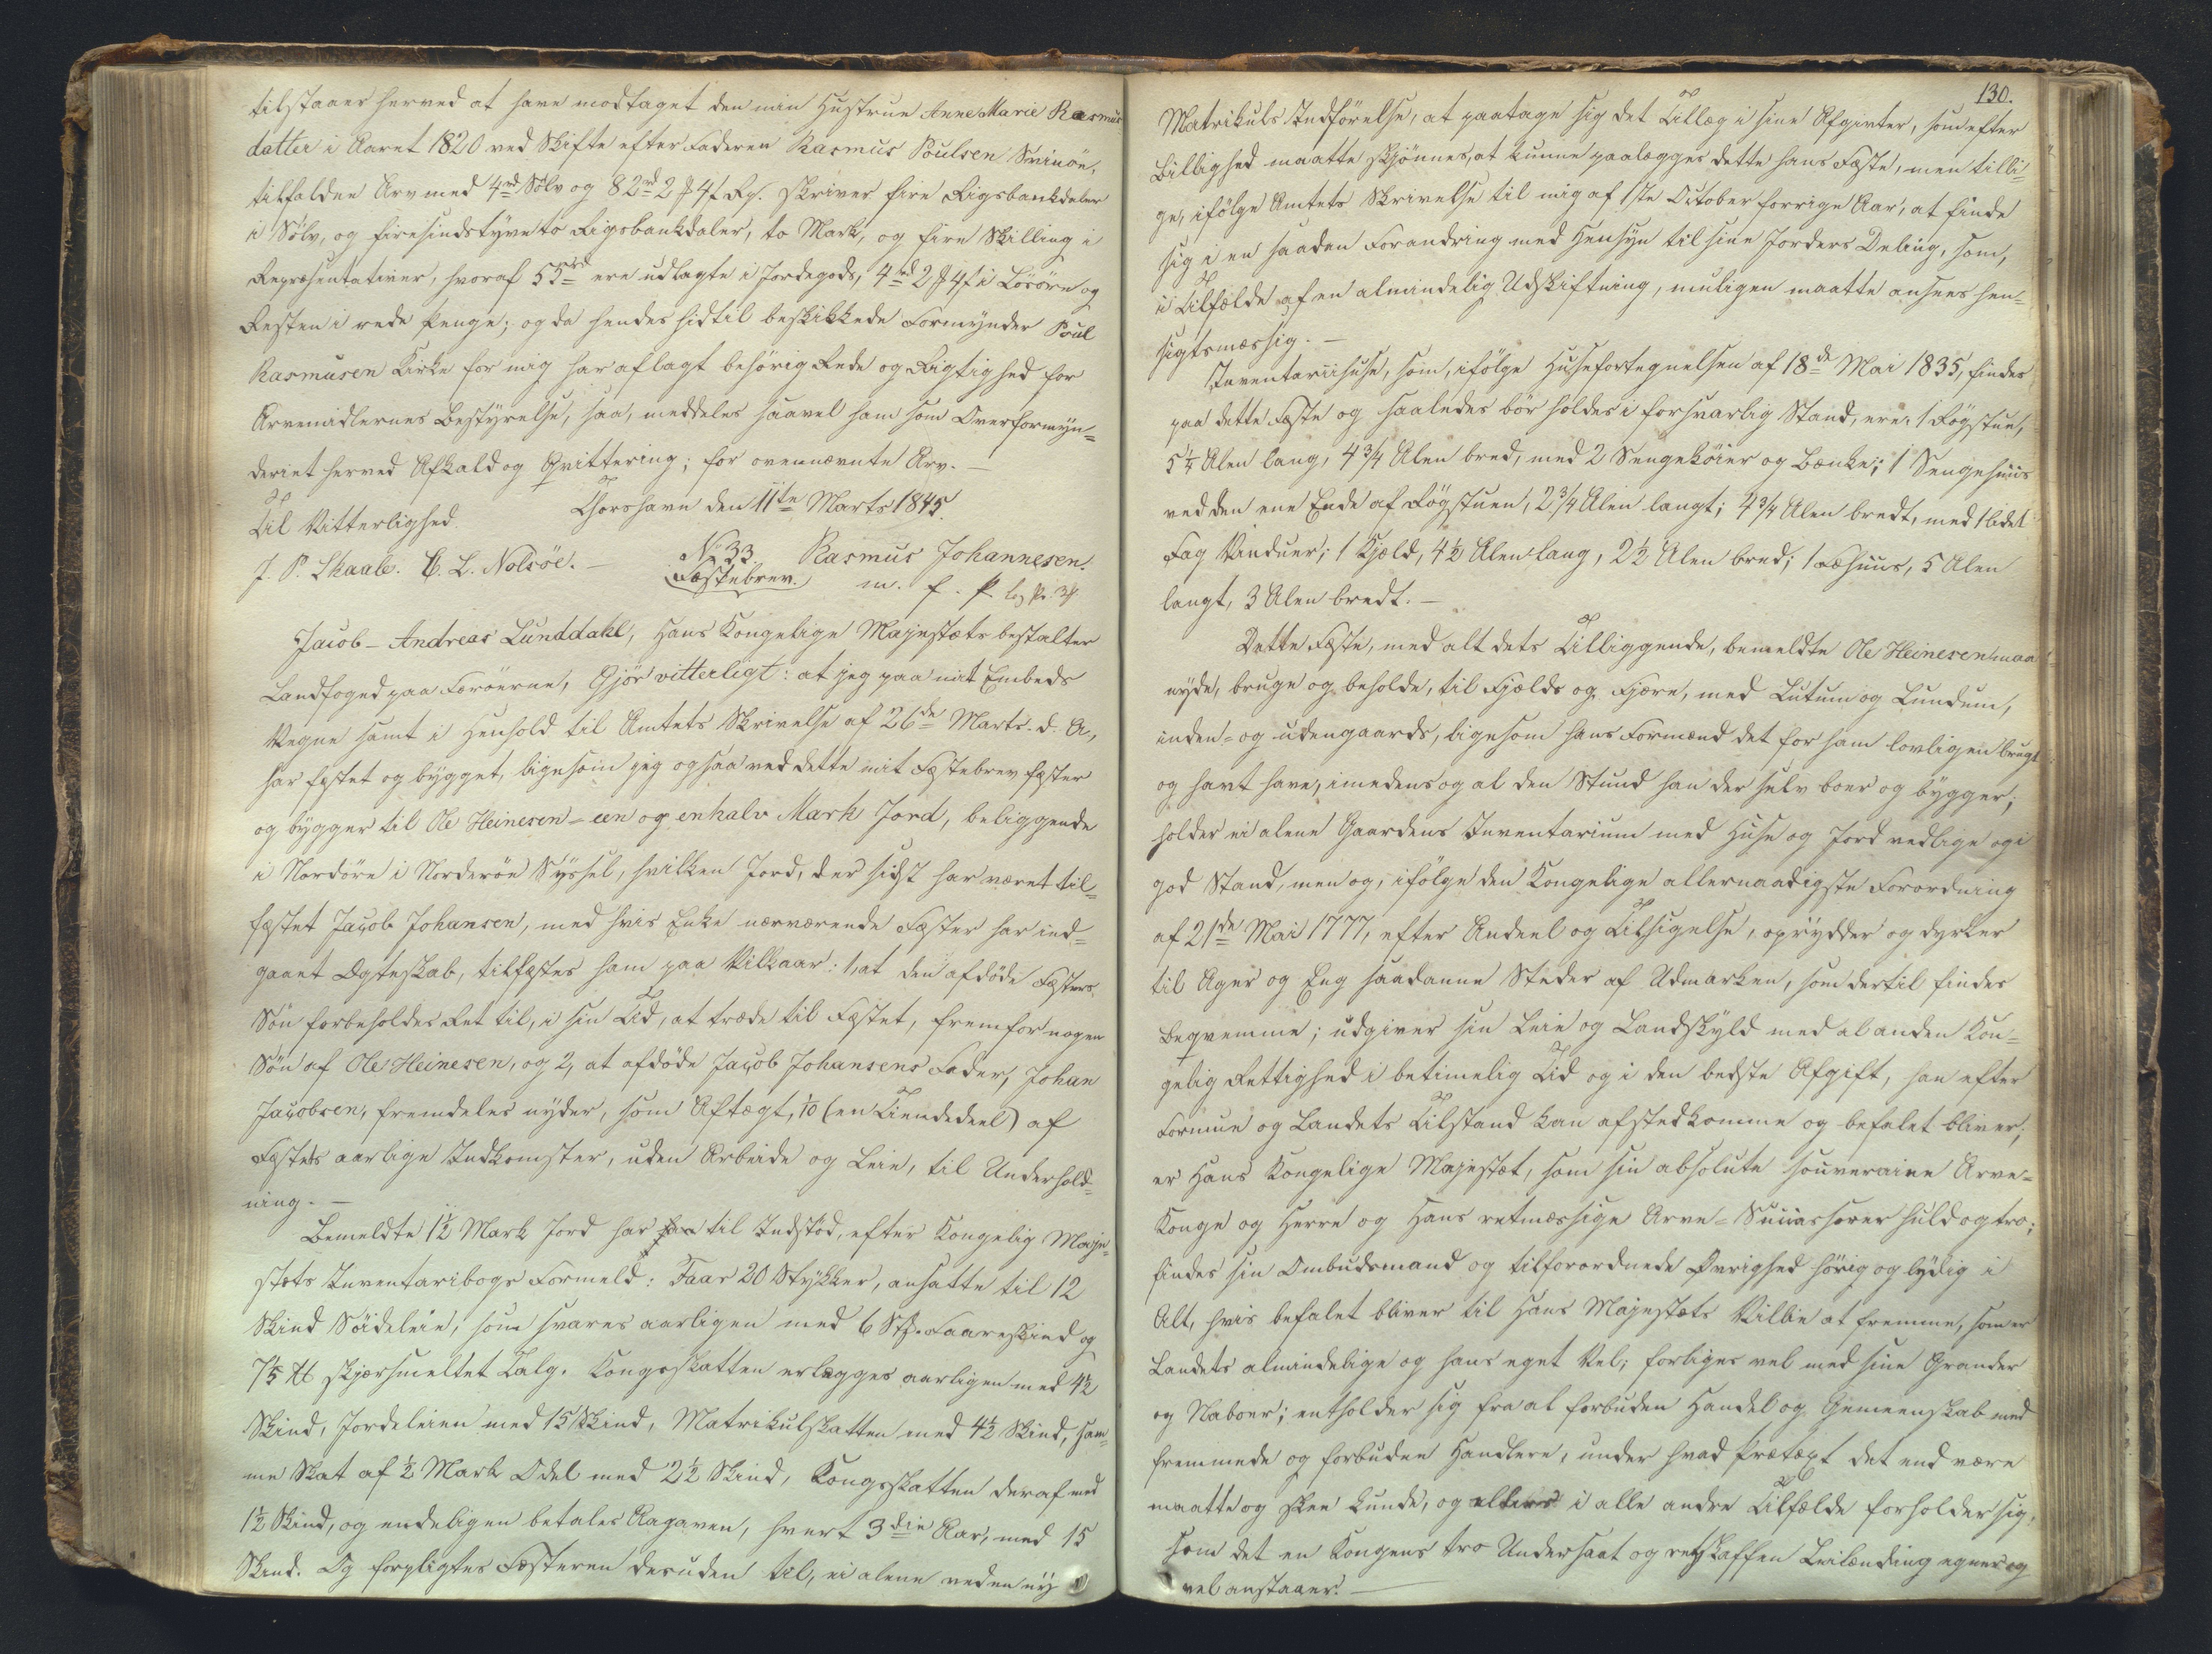 tilstaaer herved at have modtaget den min Hustrue Anne Marie Rasmus
datter i Aaret 1820 ved Skifte efter Faderen Rasmus Poulsen Svinöe,
tilfaldne Arv med 4rd Sölv og 82rd 2 ₰ 4 ſ Rp. skriver fire Rigsbankdaler
i Sölv, og firesindstyve to Rigsbankdaler, to Mark, og fire Skilling i
Repræsentativer, hvoraf 55rd ere udlagte i Jordegods, 4rd 2 ₰ 4 ſ i Lösöre og
Resten i rede Penge; og da hendes hidtil beskikkede Formynder Poul
Rasmusen Kirke for mig har aflagt behörig Rede og Rigtighed for
Arvemidlernes Bestyrelse, saa, meddeles saavel ham som Overformyn=
deriet herved Afkald og Qvittering; for ovennævnte Arv. —
Thorshavn den 11te Marts 1845.
Til Vitterlighed.
Rasmus Johannesen.
J. P. Skaale. C. L. Nolsöe. —
No 33.
Fæstebrev.
m. f. P.
Jacob - Andreas Lunddahl, Hans Kongelige Majestæts bestalter
Landfoged paa Færöerne, Gjör vitterligt: at jeg paa mit Embeds
Vegne samt i Henhold til Amtets Skrivelse af 26de Marts d. A.,
har fæstet og bygget, ligesom jeg ogsaa ved dette mit Fæstebrev fæster
og bygger til Ole Heinesen - een og en halv Mark Jord, beliggende
i Nordöre i Norderöe Syssel, hvilken Jord, der sidst har været til=
fæstet Jacob Johansen, med hvis Enke nærværende Fæster har ind=
gaaet Ægteskab, tilfæstes ham paa Vilkaar: 1, at den afdöde Fæsters
Sön forbeholdes Ret til, i sin Tid, at træde til Fæstet, fremfor nogen
Sön af Ole Heinesen, og 2, at afdöde Jacob Johansens Fader, Johan
Jacobsen, fremdeles nyder, som Aftægt, 1/10 (en Tiendedeel) af
Fæstets aarlige Indkomster, uden Arbeide og Leie, til Underhold=
ning. —
Bemeldte 1½ Mark Jord har til Indstöd, efter Kongelig Maje=
stæts Inventariibogs Formeld: Faar 20 Stykker, ansatte til 12
Skind Söideleie, som svares aarligen med 6 Stk. Faareskind og
7⅕ ℔ skjærsmeltet Talg. Kongsskatten erlægges aarligen med 4½
Skind, Jordeleien med 15 Skind, Matrikulskatten med 4½ Skind, sam=
me Skat af ½ Mark Odel med 2½ Skind, Kongsskatten deraf med
1½ Skind, og endeligen betales Aagaven, hvert 3die Aar, med 15
Skind. Og forpligtes Fæsteren desuden til, ei alene ved en ny
130.
Matrikuls Indförelse, at paatage sig det Tillæg i sine Afgivter, som efter
Billighed maatte skjönnes, at kunne paalægges dette hans Fæste, men tilli=
ge, ifölge Amtets Skrivelse til mig af 1ste October forrige Aar, at finde
sig i en saadan Forandring med Hensyn til sine Jorders Deling, som,
i Tilfælde af en almindelig Udskiftning, muligen maatte ansees hen=
sigtsmæssig. —
Inventariihuse, som, ifölge Husefortegnelsen af 18de Mai 1835, findes
paa dette Fæste og saaledes bör holdes i forsvarlig Stand, ere: 1 Rögstue,
5¼ Alen lang, 4¾ Alen bred, med 2 Sengeköier og Bænke; 1 Sengehuus
ved den ene Ende af Rögstuen, 2¾ Alen langt; 4¾ Alen bredt, med 1 lidet
Fag Vinduer; 1 Kjeld, 4½ Alen lang, 2½ Alen bred; 1 Fæhuus, 5 Alen
langt, 3 Alen bredt. —
Dette Fæste, med alt dets Tilliggende, bemeldte Ole Heinesen maa
nyde, bruge og beholde, til Fjelds og Fjære, med Lutum og Lundum,
inden- og udengaards, ligesom hans Formænd det for ham lovligen brugt
og havt have, imedens og al den Stund han der selv boer og bygger;
holder ei alene Gaardens Inventarium med Huse og Jord vedlige og i
god Stand, men og, ifölge den Kongelige allernaadigste Forordning
af 21de Mai 1777, efter Andeel og Tilsigelse, oprydder og dyrker
til Ager og Eng saadanne Steder af Udmarken, som dertil findes
beqvemme; udgiver sin Leie og Landskyld med al anden Kon=
gelig Rettighed i betimelig Tid og i den bedste Afgift, han efter
Formue og Landets Tilstand kan afstedkomme og befalet bliver;
er Hans Kongelige Majestæt, som sin absolute souveraine Arve=
Konge og Herre og Hans retmæssige Arve-Successorer huld og tro;
findes sin Ombudsmand og tilforordnede Øvrighed hörig og lydig i
Alt, hvis befalet bliver til Hans Majestæts Villie at fremme, som er
Landets almindelige og hans eget Vel; forliges vel med sine Grander
og Naboer; entholder sig fra at forbuden Handel og Gemeenskab med
fremmede og forbudne Handlere, under hvad Prætext det end være
maatte og skee kunde, og ellers i alle andre Tilfælde forholder sig,
som det en Kongens tro Undersaat og retskaffen Leilænding egner og
vel anstaaer. —